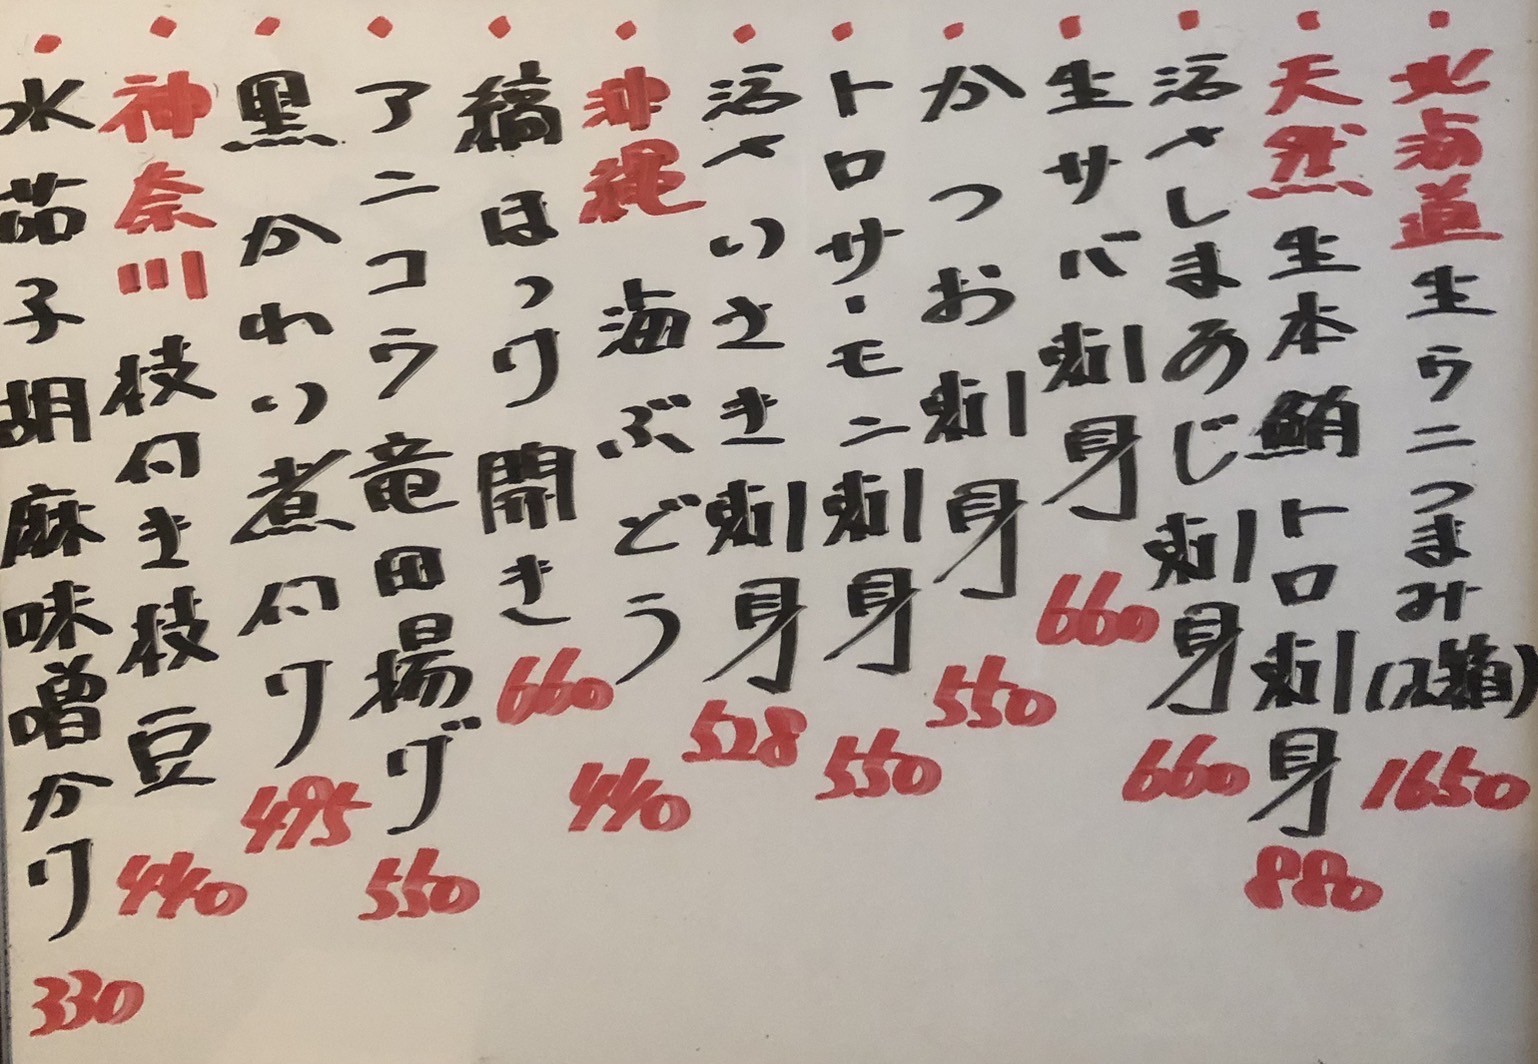 ・北海道生ウニつまみ(一箱)1650
・天然生本鮪トロ刺身880
・活〆しまあじ刺身660
・生サバ刺身660
・かつお刺身550
・トロサーモン刺身550
・活〆いさき刺身528
・沖縄海ぶどう440
・縞ほっけ開き660
・アンコウ竜田揚げ550
・黒かわい煮付け495
・神奈川枝付き枝豆440
・水茄子胡麻味噌かけ330